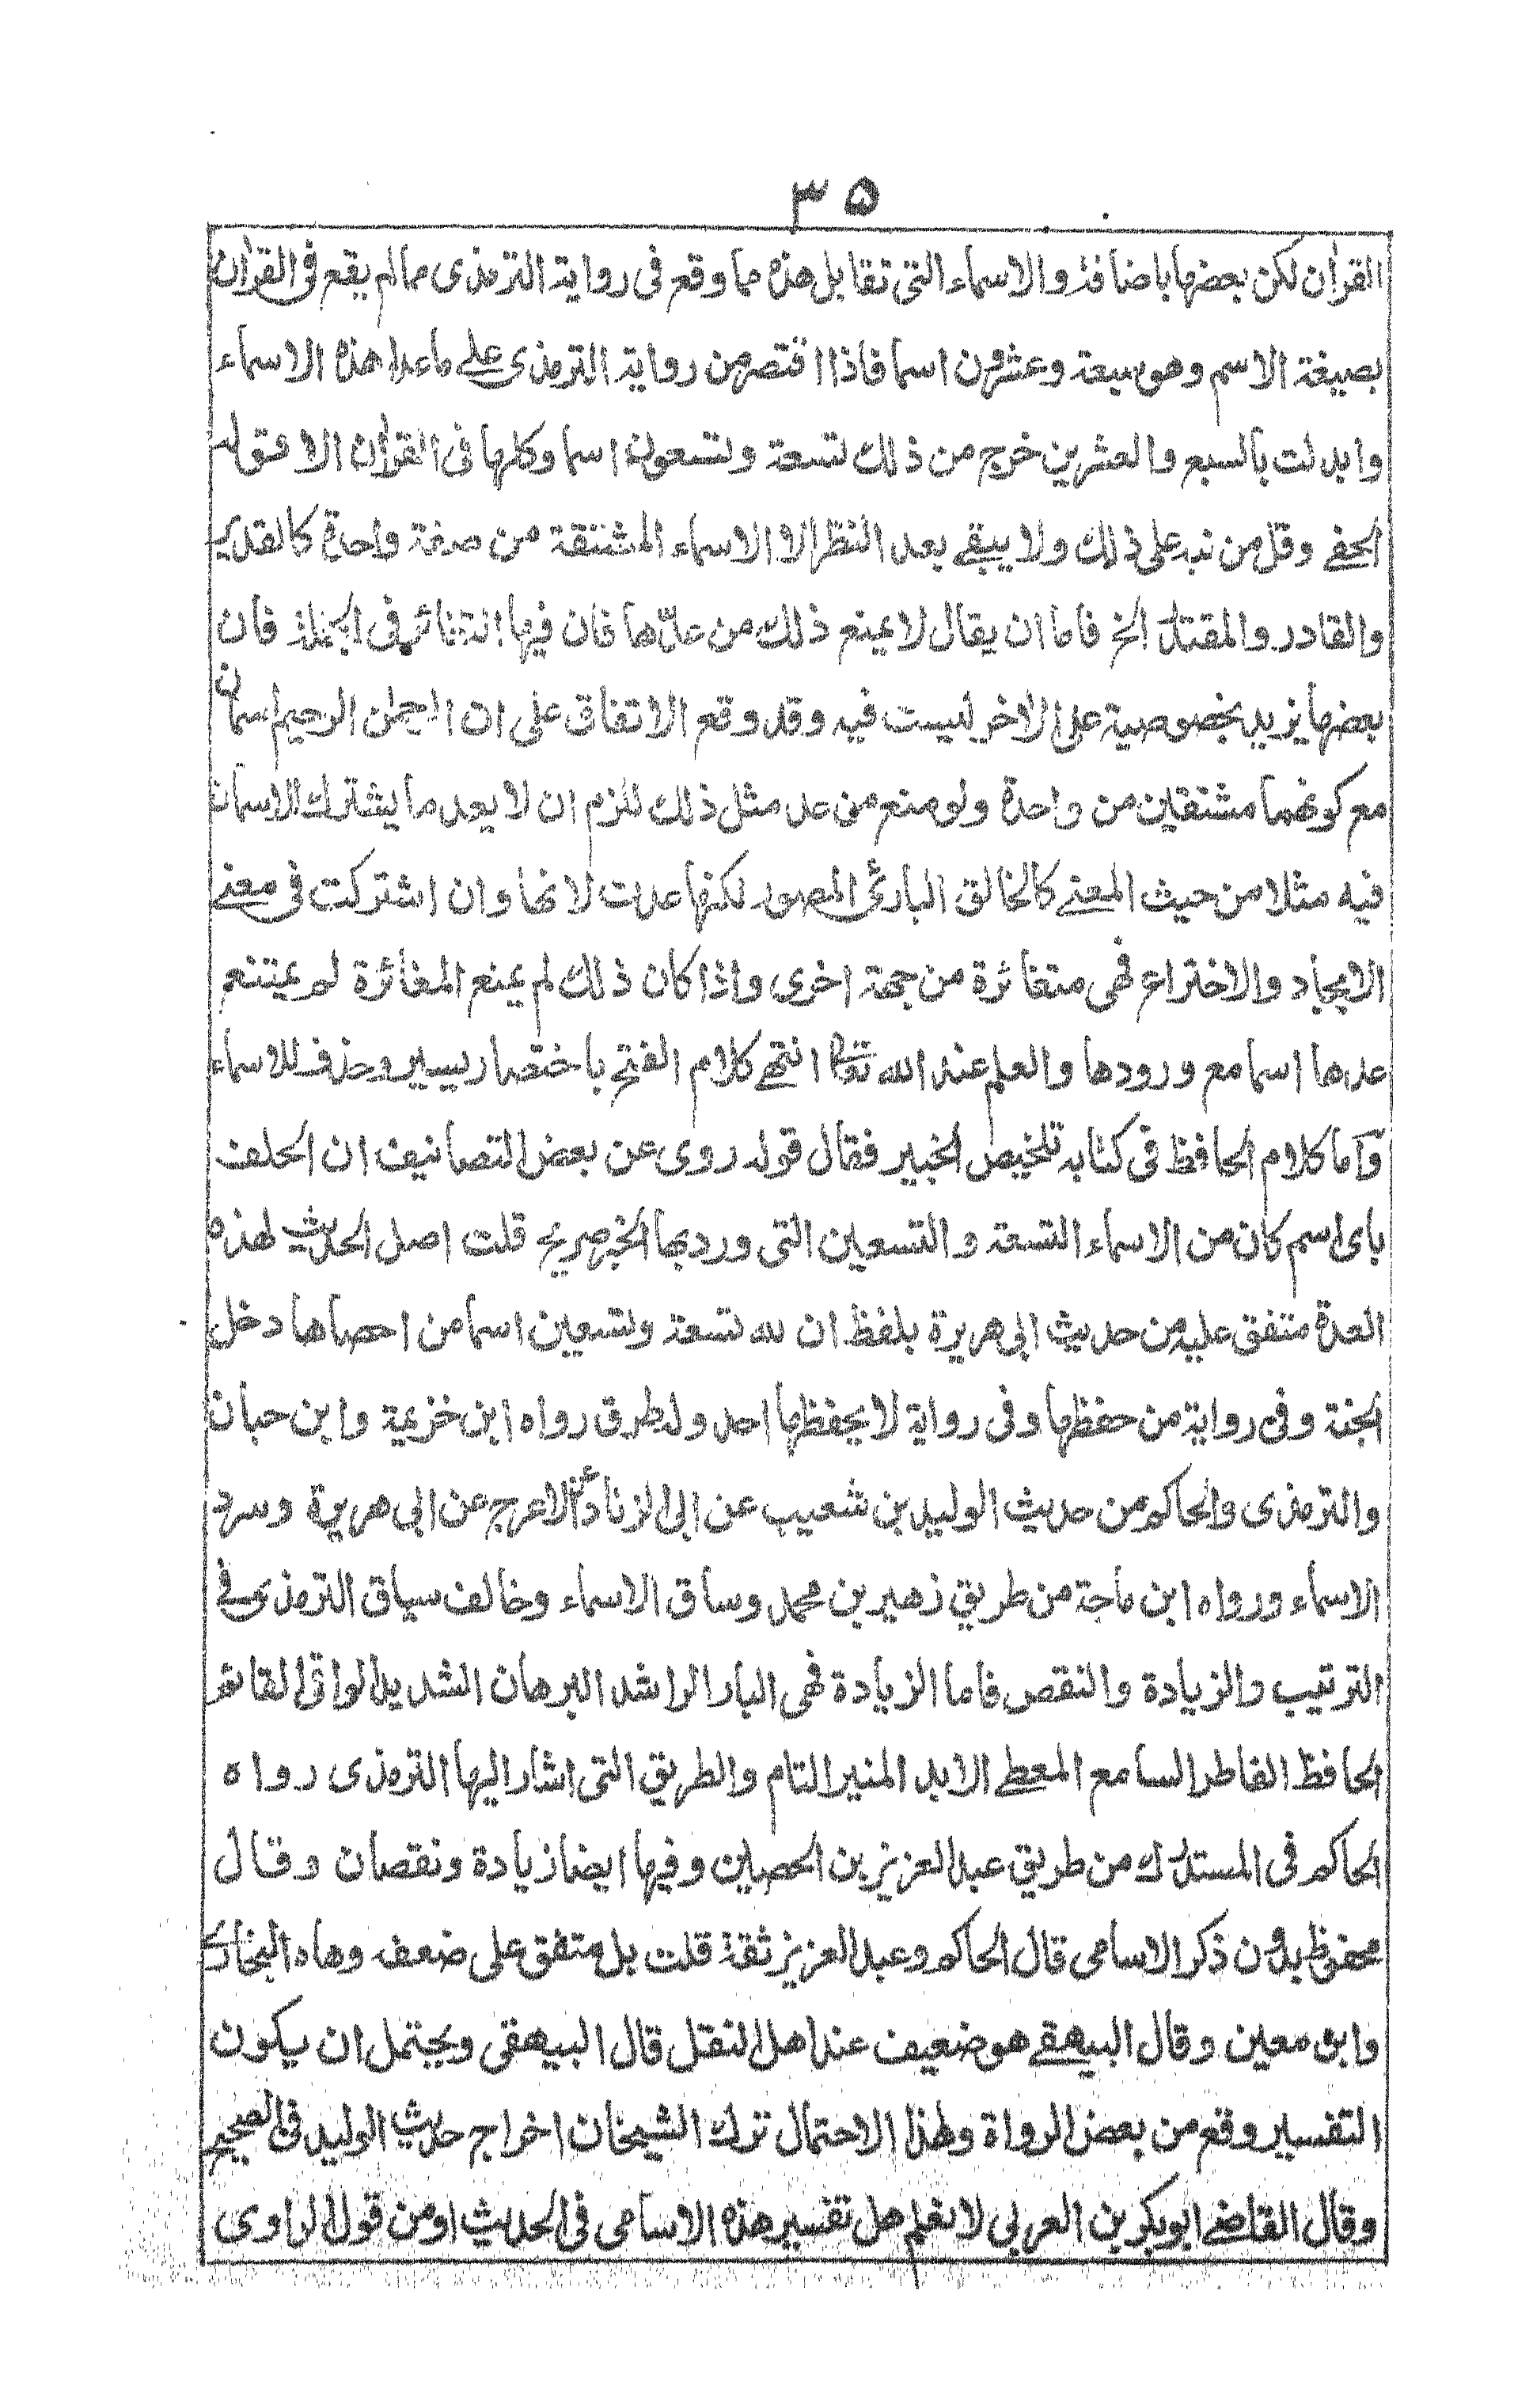 ٣٥
القرأن لكن بعضها باضافة والاسماء التى تقابل هذه مما وقع فى رواية الترمذى مما لم يقع فى القرأن
بصيغة الاسم وهو سبعة وعشرون اسما فاذا اقتصر من رواية الترمذى على ما عدا هذه الاسماء
وابدلت بالسبع والعشرين خرج من ذلك تسعة وتسعون اسما وكلها فى القرأن الا قوله
الحفے وقل من نبه على ذلك ولا يبقے بعد النظر الا الاسماء المشتقة من صفة واحدة كالقدير
والقادر والمقتدر الخ فاما ان يقال لا يمنع ذلك من عدّها فان فيها التغائر فى الجملة فان
بعضها يزيد بخصوصية على الاخر ليست فيه وقد وقع الاتفاق على ان الرحمن الرحيم اسمان
مع كونهما مشتقين من واحدة ولو منع من عد مثل ذلك للزم ان لا يعد ما يشترك الاسمان
فيه مثلا من حيث المعنے كالخالق البارئ المصور لكنها عدت لانها وان اشتركت فى معنے
الايجاد والاختراع فهى متغائرة من جهة اخرى واذا كان ذلك لم يمنع المغائرة لم يمتنع
عدها اسما مع ورودها والعلم عند الله تعالى انتهے كلام الفتح باختصار يسير وحذف للاسماء
وآما كلام الحافظ فى كتابه تلخيص الخبير فقال قوله روى عن بعض التصانيف ان الحلف
باى اسم كان من الاسماء التسعة والتسعين التى ورد بها الخبر صريح قلت اصل الحديث لهذه
العدة متفق عليه من حديث ابى هريرة بلفظ ان لله تسعة وتسعين اسما من احصاها دخل
الجنة وفى رواية من حفظها وفى رواية لا يحفظها احد وله طرق رواه ابن خزيمة وابن حبان
والترمذى والحاكم من حديث الوليد بن شعيب عن ابى الزناد عن الاعرج عن ابى هريرة وسرد
الاسماء ورواه ابن ماجة من طريق زهير بن محمد وساق الاسماء وخالف سياق الترمذى فے
الترتيب والزيادة والنقص فاما الزيادة فهى البار الراشد البرهان الشديد الواقى القائم
الحافظ الفاطر السامع المعطے الابد المنير التام والطريق التى اشار اليها الترمذى رواه
الحاكم فى المستدرك من طريق عبد العزيز بن الحصين وفيها ايضا زيادة ونقصان وقال
محفوظ بدون ذكر الاسامى قال الحاكم وعبد العزيز ثقة قلت بل متفق على ضعفه وهاه البخارے
وابن معين وقال البيهقے هو ضعيف عند اهل النقل قال البيهقى ويحتمل ان يكون
التفسير وقع من بعض الرواة ولهذا الاحتمال ترك الشيخان اخراج حديث الوليد فى الصحيح
وقال القاضے ابوبكر بن العربى لا نعلم هل تفسير هذه الاسامى فى الحديث او من قول الراوى